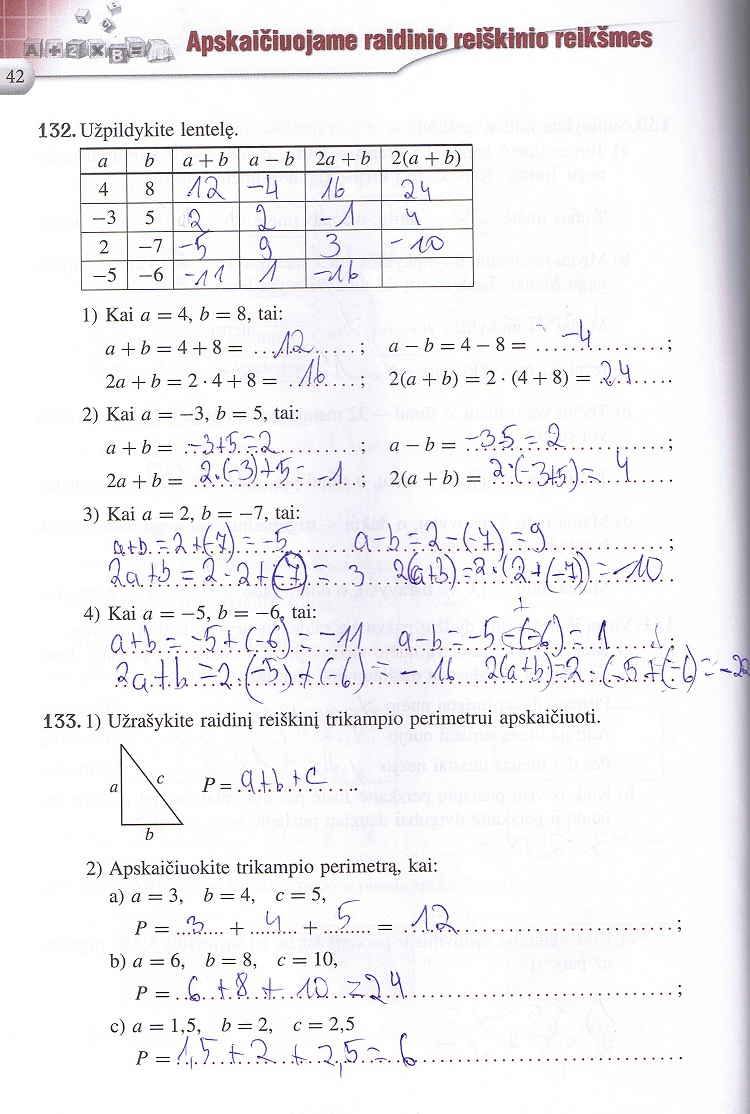 A + Z x B =
Apskaičiuojame raidinio reiškinio reikšmes
42
132. Užpildykite lentelę.
a b a + b a − b 2a + b 2(a + b)
4 8 12 −4 16 24
−3 5 2 2 −1 4
2 −7 −5 9 3 −10
−5 −6 −11 1 −16
1) Kai a = 4, b = 8, tai:
a + b = 4 + 8 = 12 ; a − b = 4 − 8 = −4 ;
2a + b = 2 · 4 + 8 = 16 ; 2(a + b) = 2 · (4 + 8) = 24
2) Kai a = −3, b = 5, tai:
a + b = −3+5=2 ; a − b = −3-5=2 ;
2a + b = 2·(−3)+5=−1 ; 2(a + b) = 2·(−3+5)=4
3) Kai a = 2, b = −7, tai:
a+b=2+(−7)=−5 a−b=2−(−7)=9 ;
2a+b=2·2+(−7)=3 2(a+b)=2·(2+(−7))=−10
4) Kai a = −5, b = −6, tai:
a+b=−5+(−6)=−11 a−b=−5−(−6)=1 ;
2a+b=2·(−5)+(−6)=−16 2(a+b)=2·(−5+(−6)=−22
133. 1) Užrašykite raidinį reiškinį trikampio perimetrui apskaičiuoti.
a c b P = a+b+c
2) Apskaičiuokite trikampio perimetrą, kai:
a) a = 3, b = 4, c = 5,
P = 3 + 4 + 5 = 12 ;
b) a = 6, b = 8, c = 10,
P = 6+8+10=24 ;
c) a = 1,5, b = 2, c = 2,5
P = 1,5+2+2,5=6